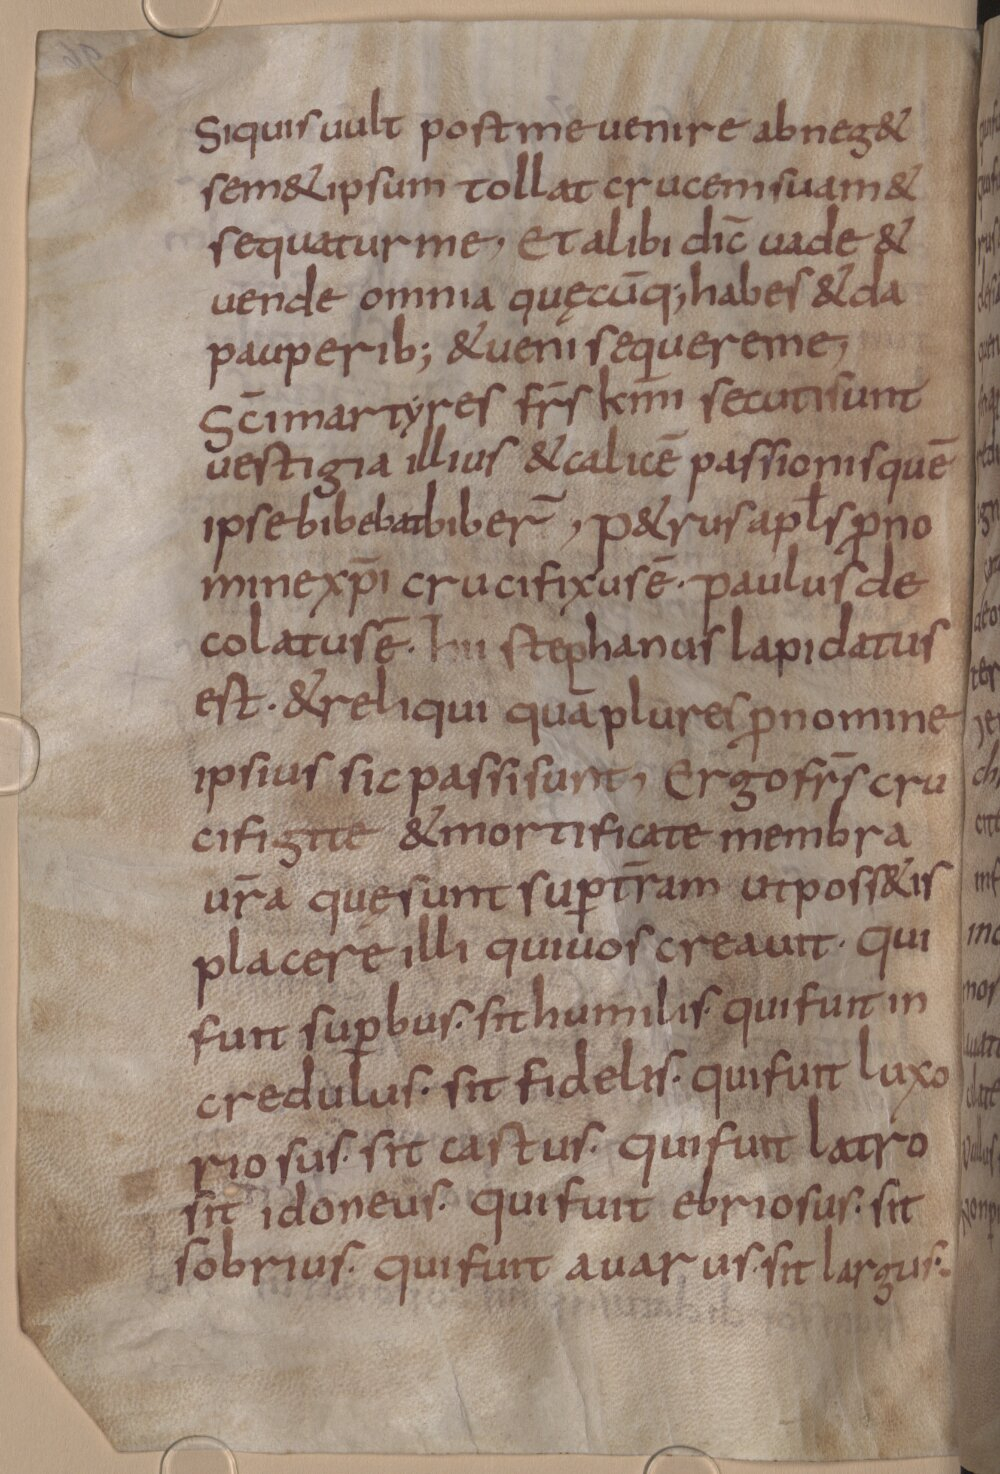 Siquis uult postmeuenire abneg&
sem&ipsum tollat crucemsuam&
sequaturme, Et alibi dic̄ uade &
uende omnia quęcūq;habes &da
pauperib; &ueni sequereme,
Sc̄imartyres fr̄s km̄i secutisunt
uestigia illius &calicē passionisquē
ipsebibebatbiber̄, p&rus apl̄s ꝓno
minexp̄i crucifixusē. paulusde
colatusē. stephanus lapidatus
est. &reliqui quāplures ꝓnomine
ipsius sic passisunt, Ergofr̄s cru
cifigite &mortificate membra
ur̄a quęsunt suꝑtr̄am utposs&is
placere illi quiuos creauit. qui
fuit suꝑbus. sithumilis. quifuit in
credulus. sit fidelis. quifuit luxo
riosus. sit castus. quifuit latro
sit idoneus. quifuit ebriosus. sit
sobrius. quifuit auarus. sit largus.